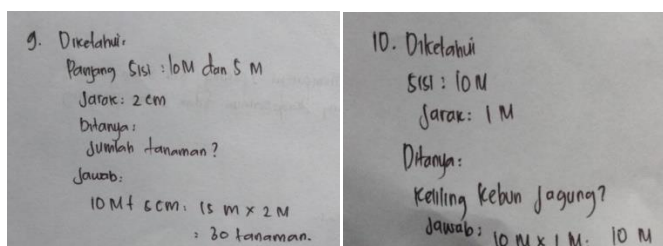 9. Diketahui:
Panjang sisi : 10M dan 5 M
Jarak: 2 cm
Ditanya:
Jumlah tanaman?
Jawab:
10 M + 5 cm: 15 m x 2 M
: 30 tanaman.
10. Diketahui
sisi : 10 M
Jarak: 1 M
Ditanya:
Keliling kebun Jagung?
Jawab: 10 M x 1 M: 10 M